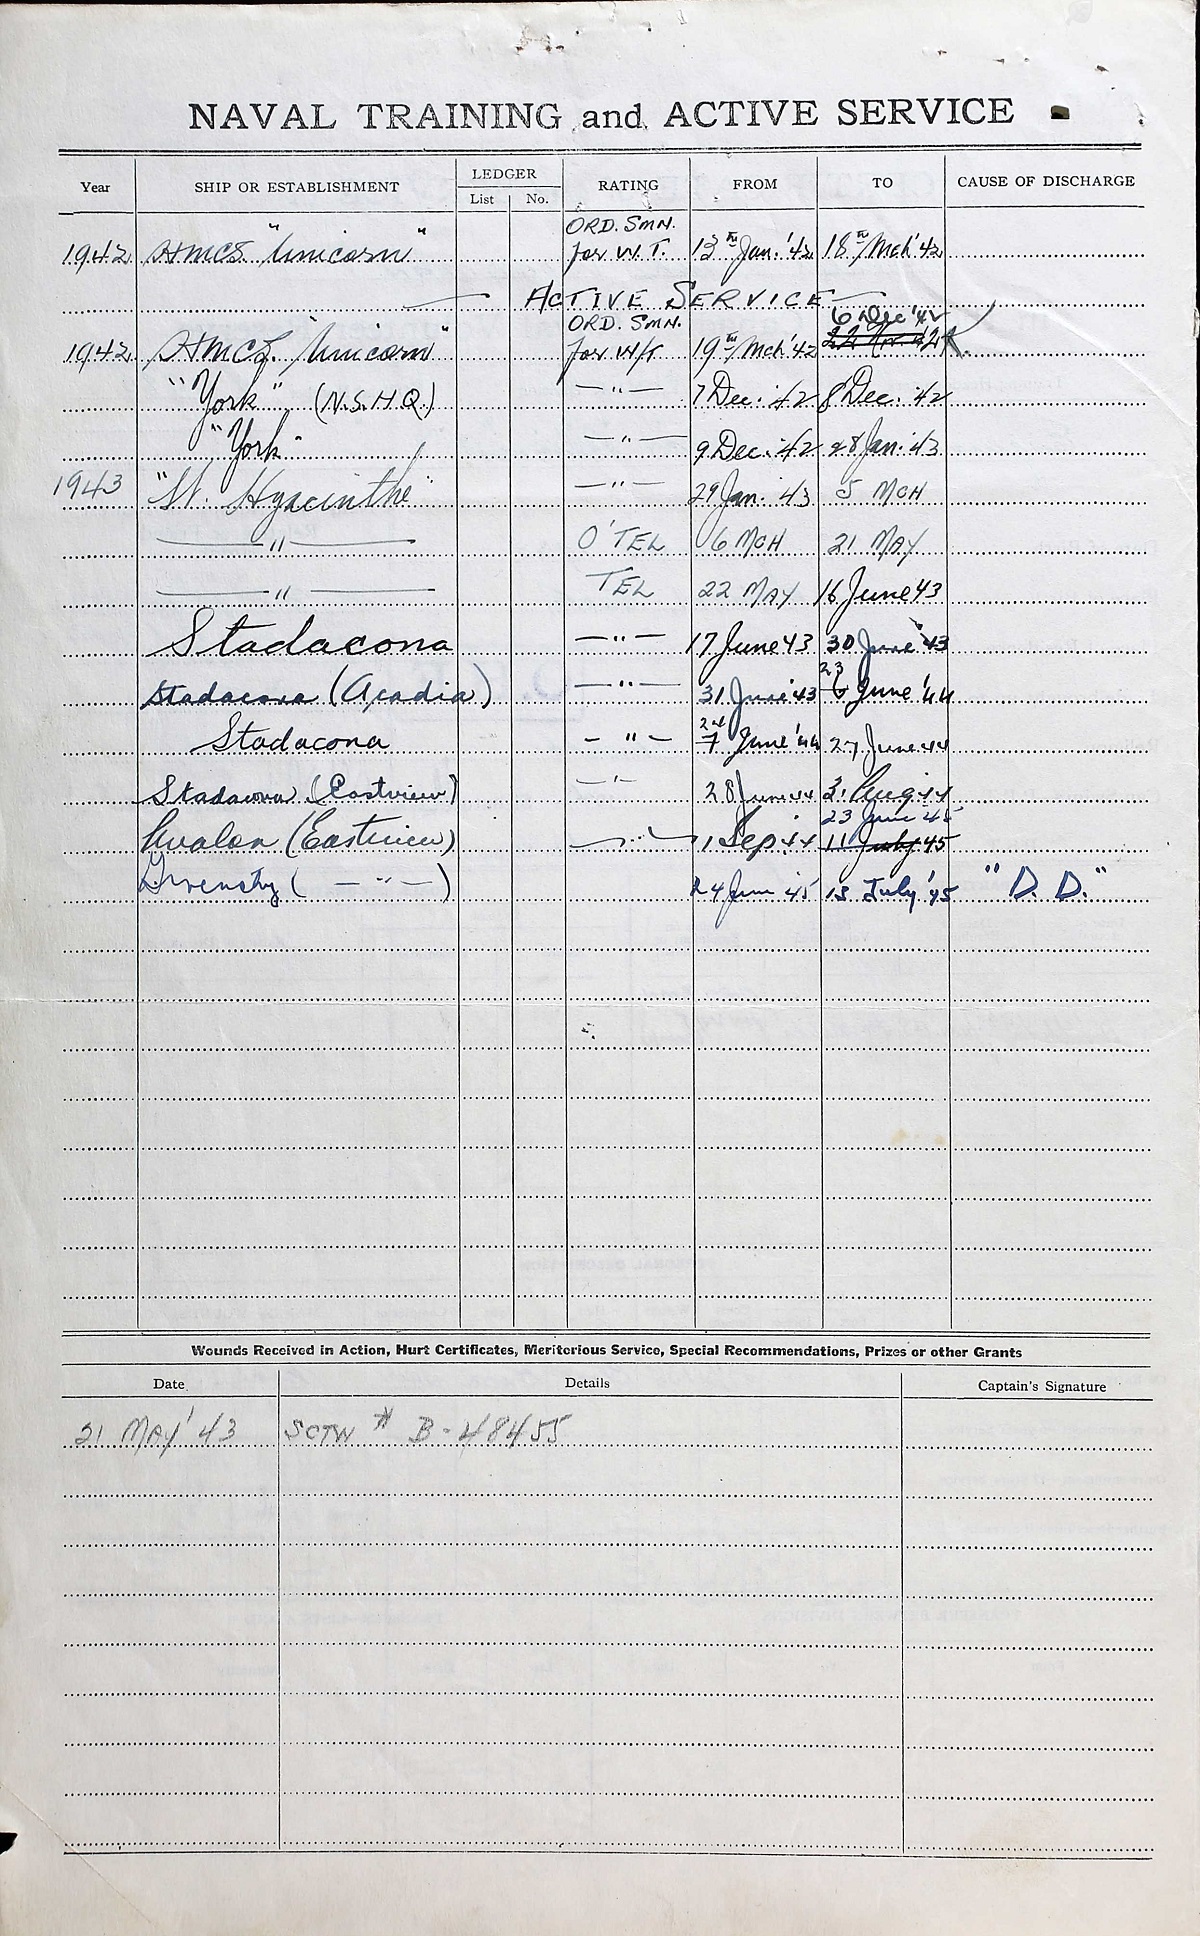 NAVAL TRAINING and ACTIVE SERVICE
Year SHIP OR ESTABLISHMENT LEDGER List No. RATING FROM TO CAUSE OF DISCHARGE
ORD. SMN.
1942 HMCS "Unicorn" for W.T. 13th Jan. '42 18th Mch '42
— ACTIVE SERVICE —
ORD. SMN. 6 Dec '42
1942 HMCS. "Unicorn" for W/T. 19th Mch '42
"York" (N.S.H.Q.) — " — 7 Dec. '42 8 Dec. '42
"York" — " — 9 Dec. '42 28 Jan. '43
1943 "St. Hyacinthe" — " — 29 Jan. '43 5 MCH
— " — O'TEL 6 MCH 21 MAY
— " — TEL 22 MAY 16 June 43
Stadacona — " — 17 June 43 30 June '43
23
Stadacona (Acadia) — " — 31 June '43 6 June '44
24
Stadacona — " — 7 June '44 27 June 44
Stadacona (Eastview) — " — 28 June 44 31 Aug 44
23 June 45
Avalon (Eastview) — " — 1 Sep 44 11 July 45
( — " — ) 24 June '45 13 July '45 "D. D."
Wounds Received in Action, Hurt Certificates, Meritorious Service, Special Recommendations, Prizes or other Grants
Date Details Captain's Signature
21 MAY '43 SCTW # B-48455